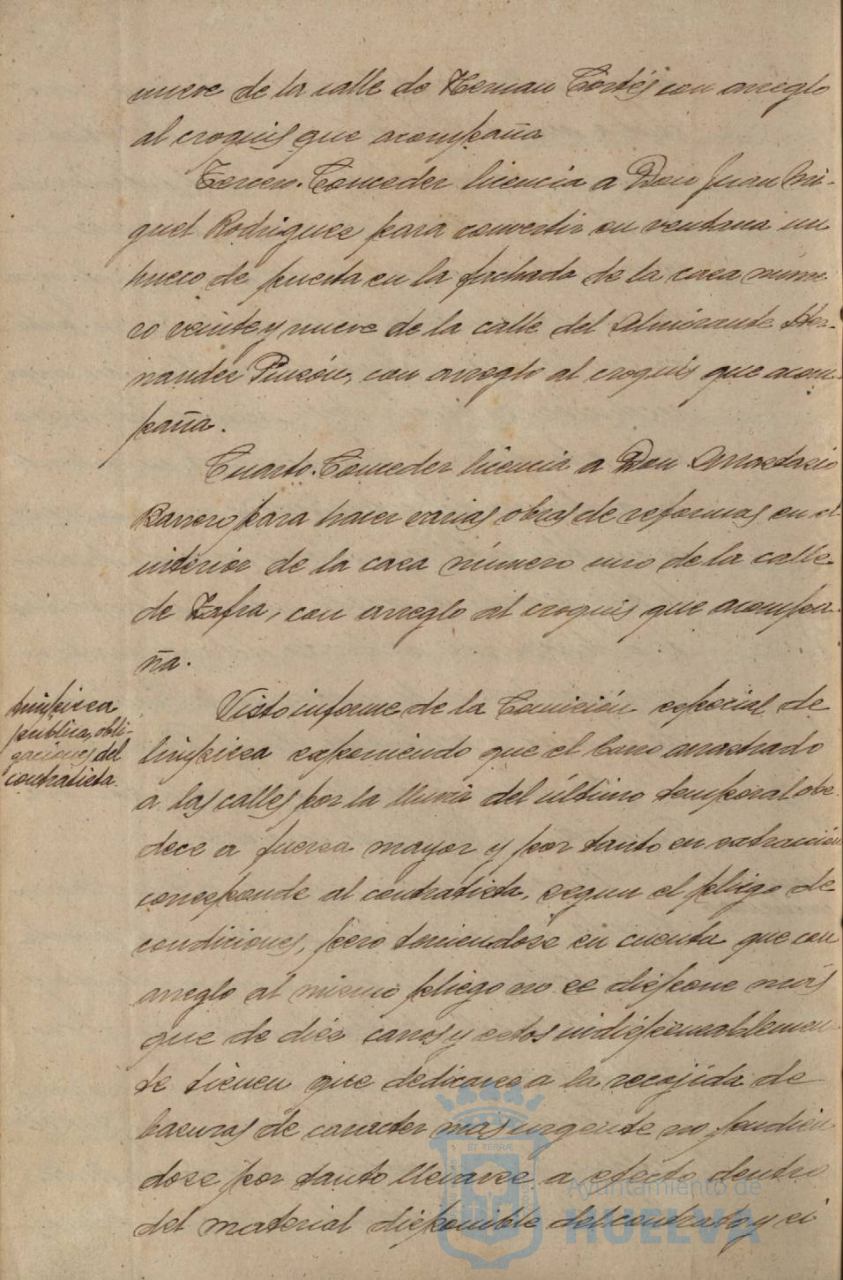 nueve de la calle de Hernan Cortés con arreglo
al croquis que acompaña
Tercero. Conceder licencia a Don Juan Mi-
guel Rodriguez para convertir en ventana un
hueco de puerta en la fachada de la casa núme
ro veinte y nueve de la calle del Almirante Her-
nandez Pinzón, con arreglo al croquis que acom-
paña.
Cuarto. Conceder licencia a Don Anastasio
Barrero para hacer varias obras de reformas en el
interior de la casa número uno de la calle
de Zafra, con arreglo al croquis que acompa-
ña.
Limpieza
pública, obli-
gaciones del
contratista.
Visto informe de la Comisión especial de
limpieza exponiendo que el barro arrastrado
a las calles por la lluvia del último temporal obe-
dece a fuerza mayor y por tanto su extracción
corresponde al contratista, segun el pliego de
condiciones, pero teniendose en cuenta que con
arreglo al mismo pliego no se dispone más
que de diez carros y estos indispensablemen-
te tienen que dedicarse a la recojida de
basuras de caracter mas urgente no pudien
dose por tanto llevarse a efecto dentro
del material disponible del contrato y si
Ayuntamiento de
HUELVA